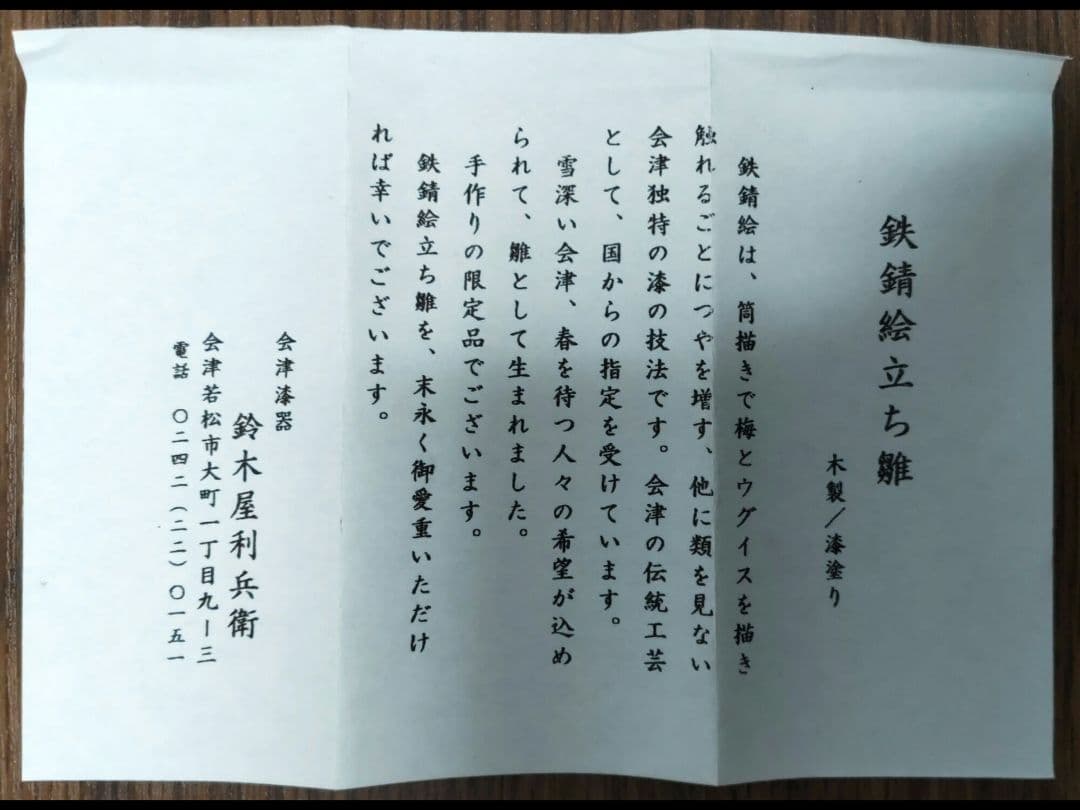 鉄錆絵立ち雛
木製／漆塗り
鉄錆絵は、筒描きで梅とウグイスを描き
触れるごとにつやを増す、他に類を見ない
会津独特の漆の技法です。会津の伝統工芸
として、国からの指定を受けています。
雪深い会津、春を待つ人々の希望が込め
られて、雛として生まれました。
手作りの限定品でございます。
鉄錆絵立ち雛を、末永く御愛重いただけ
れば幸いでございます。
会津漆器
鈴木屋利兵衛
会津若松市大町一丁目九ー三
電話 〇二四二（二二）〇一五一